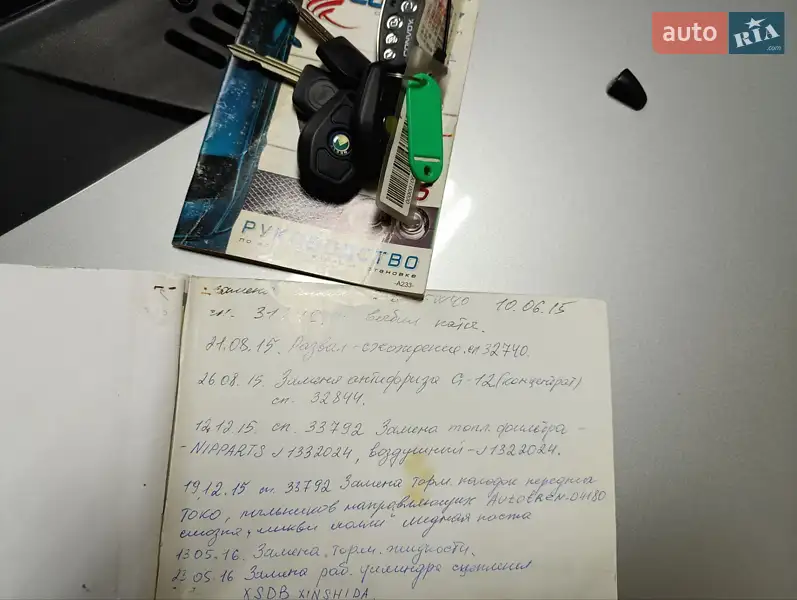 auto RIA .com
CONVOY
РУКОВОДСТВО
-A233-
Замена 10.06.15
21.08.15. Развал-схождение. сп 32740.
26.08.15. Замена антифриза G-12 (концентрат)
сп. 32844.
12.12.15. сп. 33792 Замена топл. фильтра -
- NIPPARTS J1332024, воздушный - J1322024.
19.12.15 сп. 33792 Замена торм. колодок передних
TOKO, пыльников направляющих AUTOFREN-D4180
смазка, медная паста
13.05.16. Замена торм. жидкости.
23.05.16 Замена раб. цилиндра сцепления
XSDB XINSHIDA.